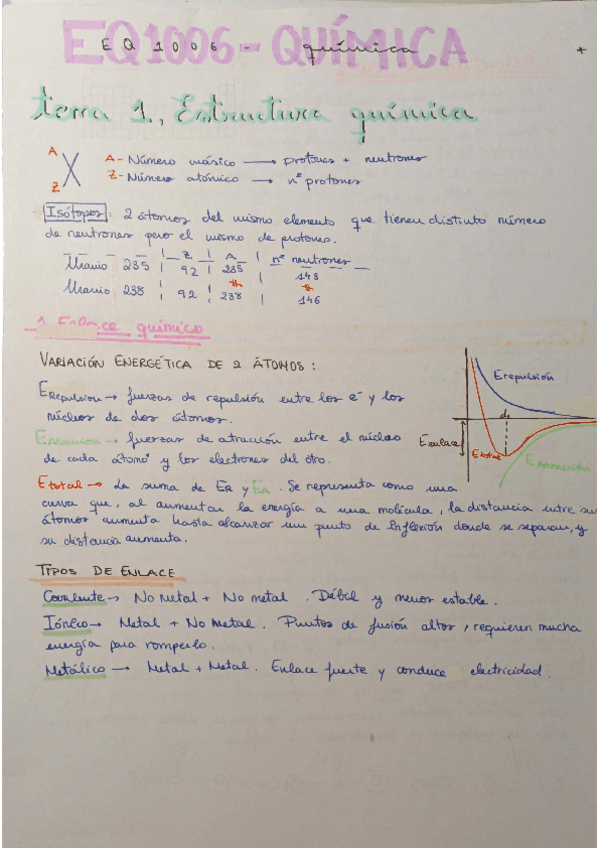 EQ1006 - QUÍMICA
EQ1006 - química
tema 1., Estructura química
A
Z
X
A - Número másico → protones + neutrones
Z - Número atómico → nº protones
Isótopos: 2 átomos del mismo elemento que tienen distinto número
de neutrones pero el mismo de protones.
Z | A | nº neutrones
Uranio 235 | 92 | 235 | 143
Uranio 238 | 92 | 238 | 146
Th Th
1. Enlace químico
VARIACIÓN ENERGÉTICA DE 2 ÁTOMOS:
Erepulsión → fuerzas de repulsión entre los e⁻ y los
núcleos de dos átomos.
Eatracción → fuerzas de atracción entre el núcleo
de cada átomo y los electrones del otro.
Etotal → La suma de ER y EA. Se representa como una
curva que, al aumentar la energía a una molécula, la distancia entre sus
átomos aumenta hasta alcanzar un punto de Inflexión donde se separan, y
su distancia aumenta.
Erepulsión
Eenlace
Etotal
Eatracción
TIPOS DE ENLACE
Covalente → No Metal + No metal. Débil y menor estable.
Iónico → Metal + No Metal. Puntos de fusión altos, requieren mucha
energía para romperlo.
Metálico → Metal + Metal. Enlace fuerte y conduce electricidad.